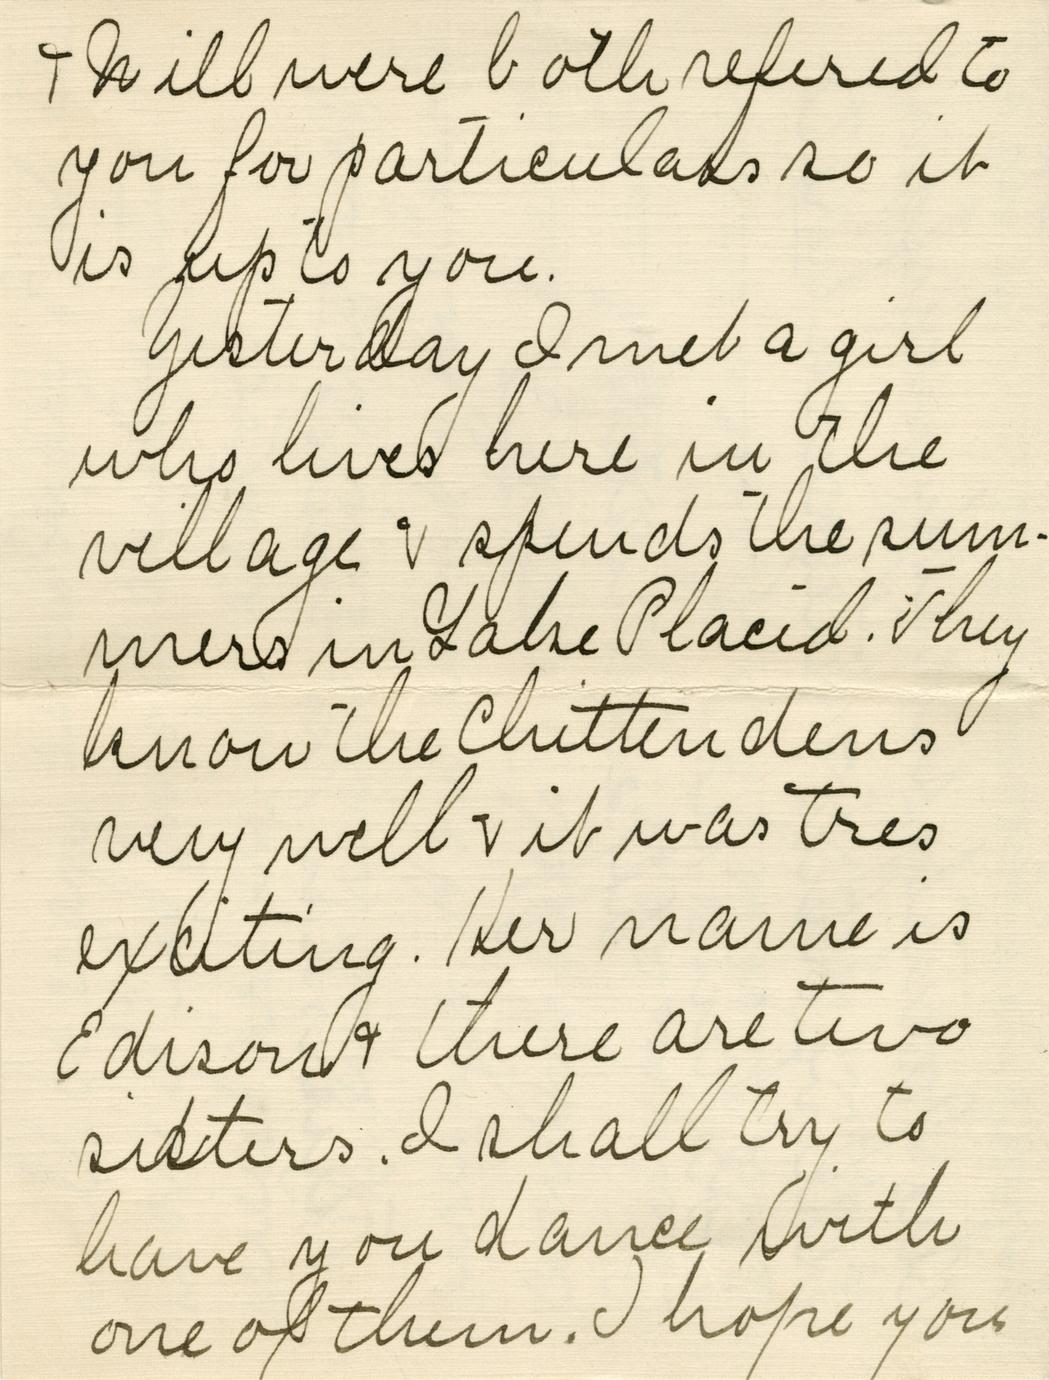 & Will were both refered to
you for particulars so it
is up to you.
Yesterday I met a girl
who lives here in the
village & spends the sum-
mers in Lake Placid. They
know the Chittendens
very well & it was tres
exciting. Her name is
Edison & there are two
sisters. I shall try to
have you dance with
one of them. I hope you